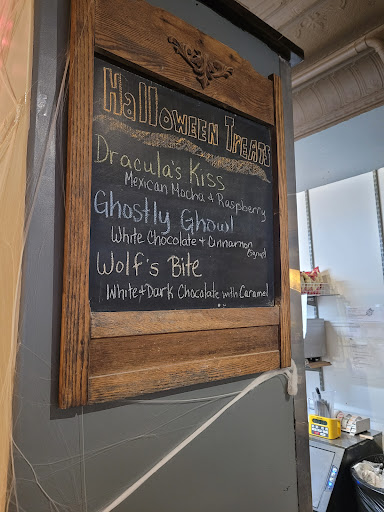 Halloween Treats
Dracula's Kiss
Mexican Mocha & Raspberry
Ghostly Ghoul
White Chocolate + Cinnamon
Wolf's Bite
White+Dark Chocolate with Caramel